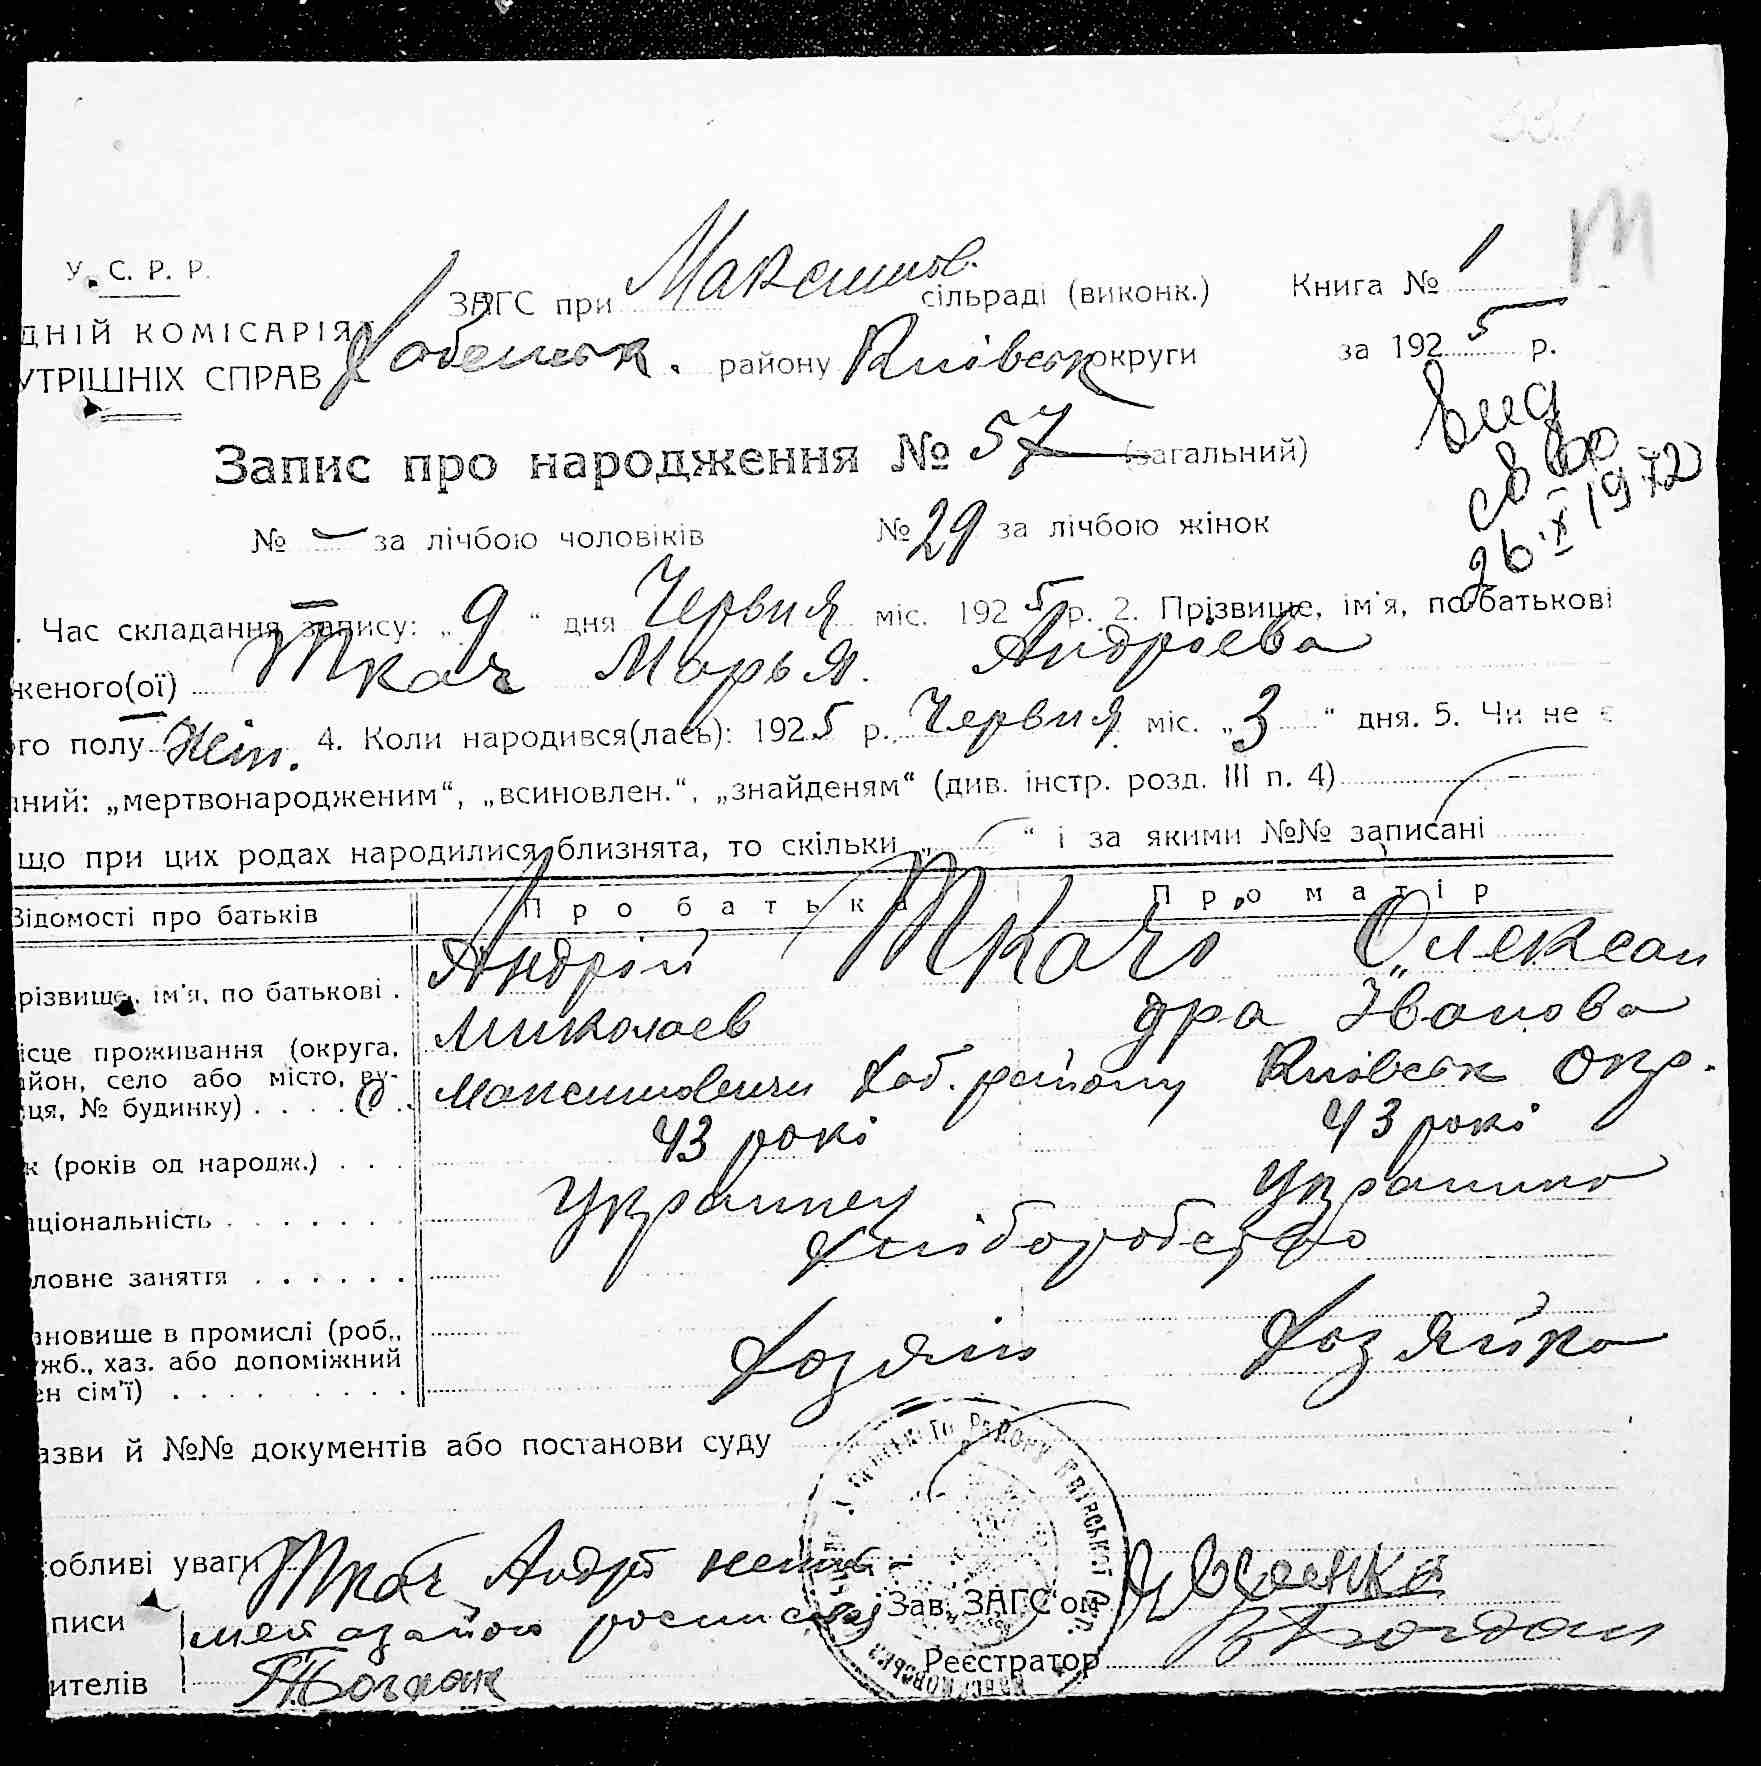 У. С. Р. Р.
ЗАГС при Максимов. сільраді (виконк.) Книга № 1
ДНІЙ КОМІСАРІЯТ
УТРІШНІХ СПРАВ Хабенськ. району Київськ округи за 1925 р.
вид
св во
26.X 1972
Запис про народження № 57 (загальний)
№ — за лічбою чоловіків № 29 за лічбою жінок
. Час складання запису: „9“ дня Червня міс. 1925 р. 2. Прізвище, ім'я, по батькові
женого(ої) Ткач Марья Андрієва
го полу Жін. 4. Коли народився(лась): 1925 р. Червня міс. „3“ дня. 5. Чи не є
аний: „мертвонародженим“, „всиновлен.“, „знайденям“ (див. інстр. розд. III п. 4)
що при цих родах народилися близнята, то скільки „ “ і за якими №№ записані
Відомості про батьків Про батька Про матір
різвище, ім'я, по батькові . Андрій Ткач Олексан
Миколаєв дра Іванова
ісце проживання (округа,
йон, село або місто, ву-
ця, № будинку) . . . . Максимовичи Хаб. району Київськ окр.
к (років од народж.) . . . 43 рокі 43 рокі
аціональність . . . . . . . Українец Українка
ловне заняття . . . . . . Хліборобство
ановище в промислі (роб.,
ужб., хаз. або допоміжний
ен сім'ї) . . . . . . . . . Хозяїн Хозяйка
азви й №№ документів або постанови суду
обливі уваги Ткач Андрій
писи Зав. ЗАГС'ом
Реєстратор Богдан
ителів